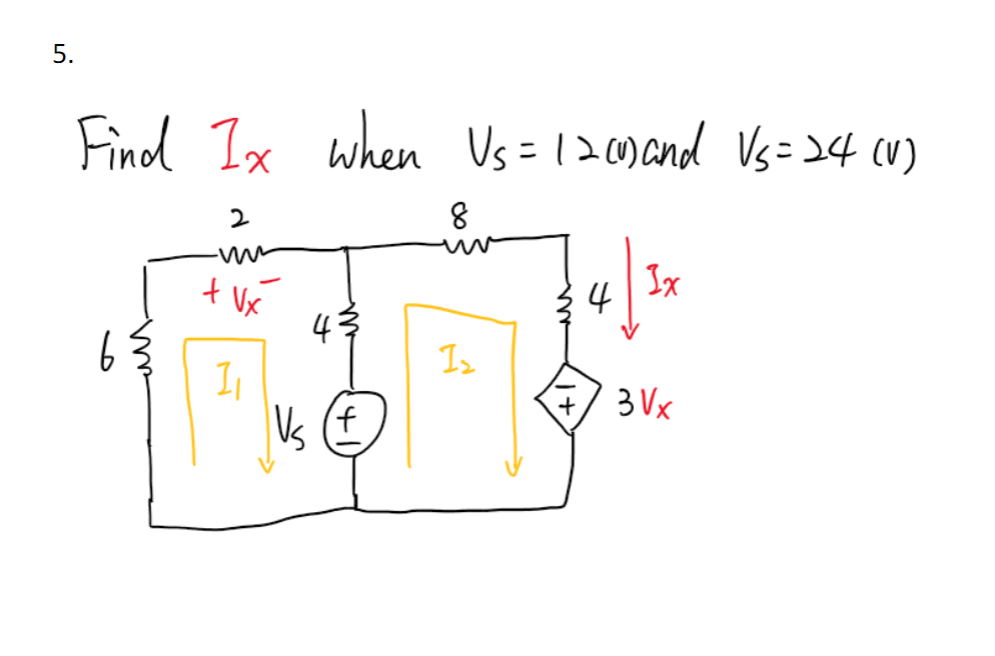 5.
Find Ix when Vs = 12 (v) and Vs = 24 (v)
2
8
+ Vx -
4
Ix
6
4
I1
I2
Vs
+
-
-
+
3Vx